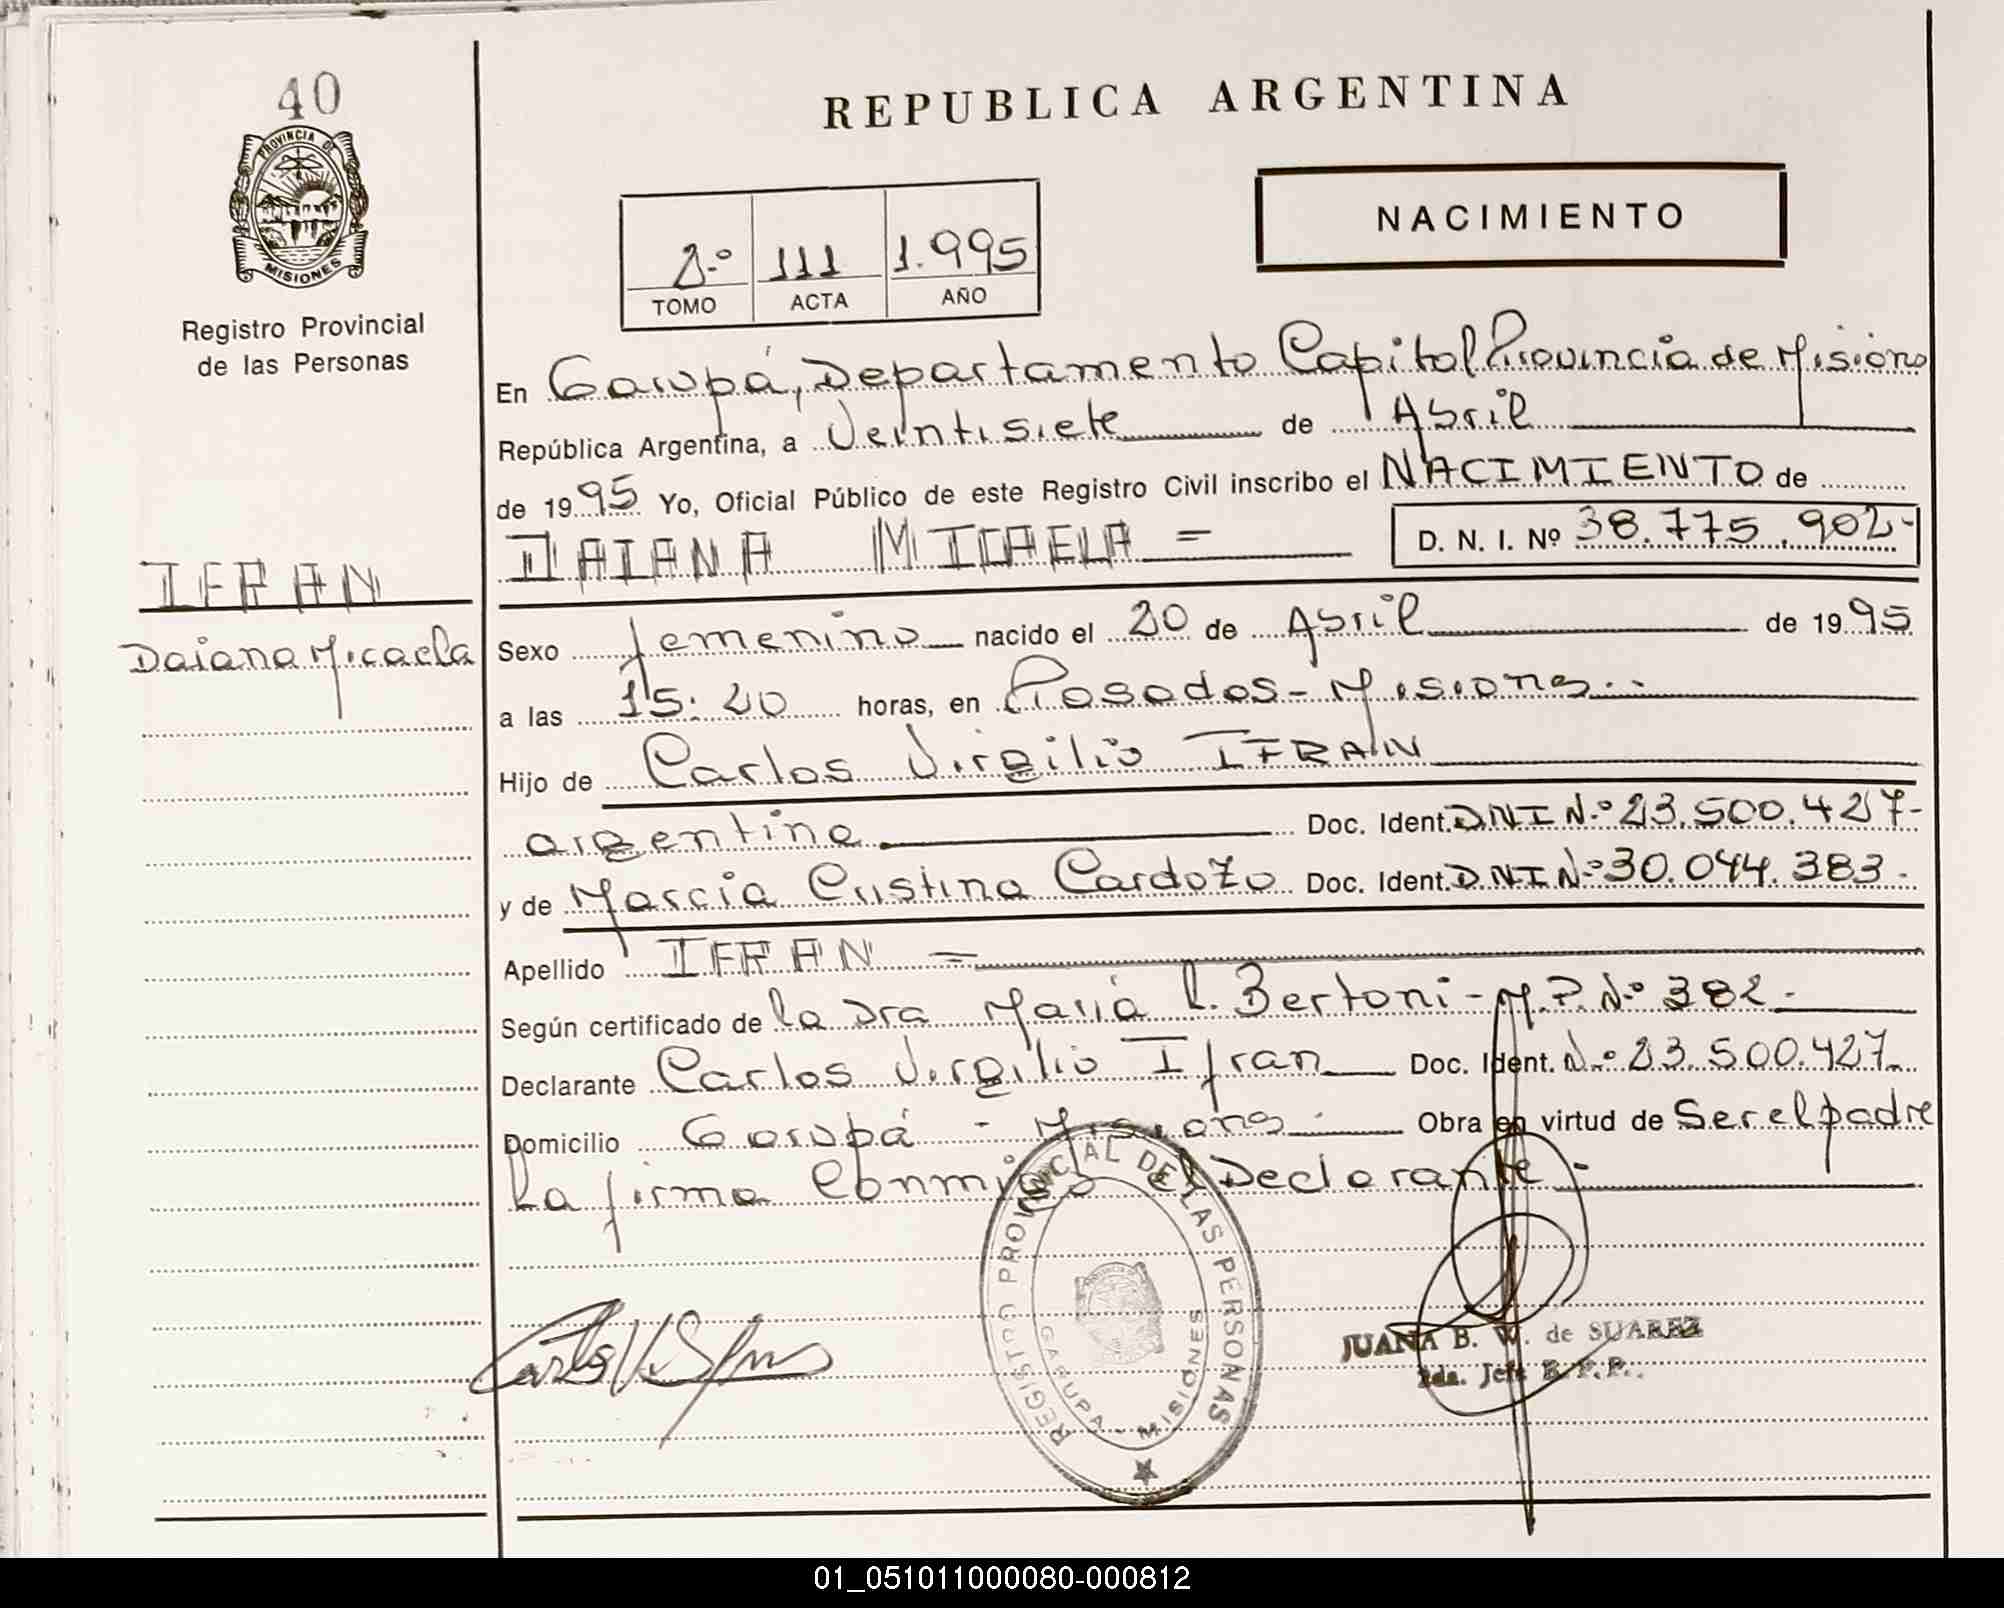 40
PROVINCIA DE
MISIONES
Registro Provincial
de las Personas
REPUBLICA ARGENTINA
NACIMIENTO
2.º 111 1.995
TOMO ACTA AÑO
En Garupá, Departamento Capital Provincia de Misiones
República Argentina, a Veintisiete de Abril
de 1995 Yo, Oficial Público de este Registro Civil inscribo el NACIMIENTO de
DAIANA MICAELA = D. N. I. Nº 38.775.902-
IFRAN
Daiana Micaela
Sexo femenino nacido el 20 de Abril de 1995
a las 15:20 horas, en Posadas - Misiones..
Hijo de Carlos Virgilio IFRAN
argentino Doc. Ident. DNI N.º 23.500.427-
y de Marcia Cristina Cardozo Doc. Ident. DNI N.º 30.044.383-
Apellido IFRAN =
Según certificado de la Dra María L. Bertoni - M.P. N.º 382-
Declarante Carlos Virgilio Ifran Doc. Ident. N.º 23.500.427
Domicilio Garupá - Misiones Obra en virtud de Ser el padre
La firma Conmigo el Declarante -
REGISTRO PROVINCIAL DE LAS PERSONAS
GARUPA - MISIONES
JUANA B. W. de SUAREZ
2da. Jefe R.P.P.
01_051011000080-000812